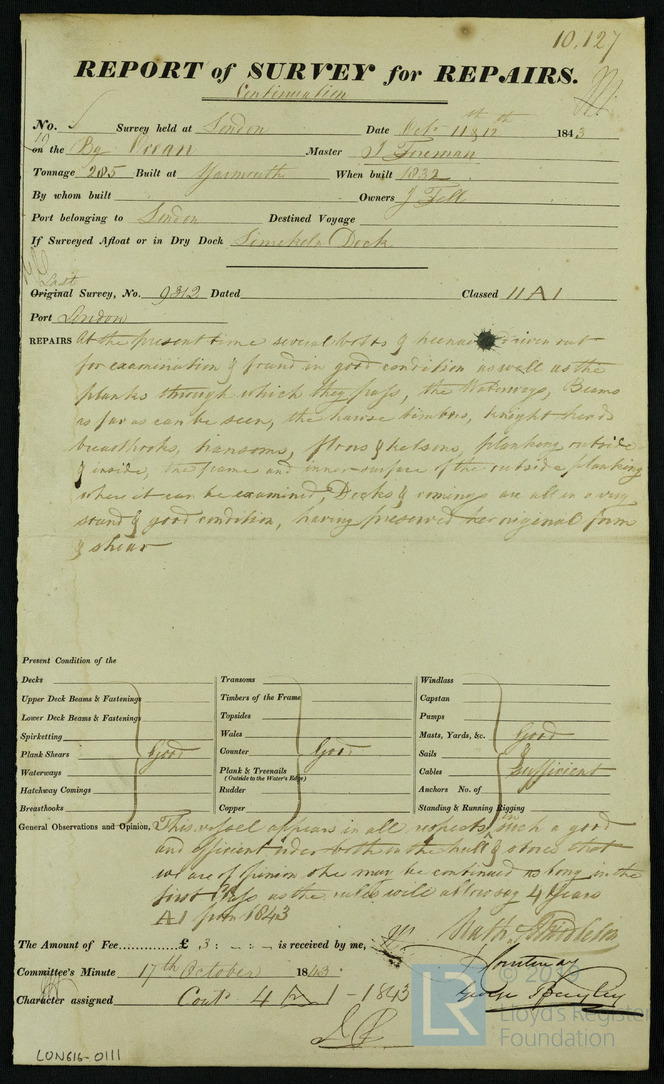 10.127
REPORT of SURVEY for REPAIRS.
Continuation
No. Survey held at London Date Octr 11th & 12th 1843
on the Bg Ocean Master J Foreman
Tonnage 205 Built at Yarmouth When built 1832
By whom built Owners J Fell
Port belonging to London Destined Voyage
If Surveyed Afloat or in Dry Dock Limekiln Dock
Last
Original Survey, No. 9312 Dated Classed 11 A 1
Port London
REPAIRS At the present time several bolts & treenails driven out
for examination & found in good condition as well as the
planks through which they pass, the Waterways, Beams
as far as can be seen, the hawse timbers, knight heads
breasthooks, transoms, floors & kelsons, planking outside
& inside, the frame and inner surface of the outside planking
where it can be examined, Decks & comings are all in a very
sound & good condition, having preserved her original form
& shear
Present Condition of the
Decks
Upper Deck Beams & Fastenings
Lower Deck Beams & Fastenings
Spirketting
Plank Shears Good
Waterways
Hatchway Comings
Breasthooks
Transoms
Timbers of the Frame
Topsides
Wales
Counter Good
Plank & Treenails
(Outside to the Water's Edge)
Rudder
Copper
Windlass
Capstan
Pumps
Masts, Yards, &c. Good
Sails
Cables Sufficient
Anchors No. of
Standing & Running Rigging
General Observations and Opinion, This vessel appears in all respects in such a good
and efficient order both in the hull & stores that
we are of opinion she may be continued as long in the
first Class as the rules will allow say 4 Years
A1 from 1843
The Amount of Fee............ £ 3 : - : - is received by me,
Committee's Minute 17th October 1843
Character assigned Contd 4 A 1 - 1843
© 2019
LR
Lloyd's Register
Foundation
LON616-0111